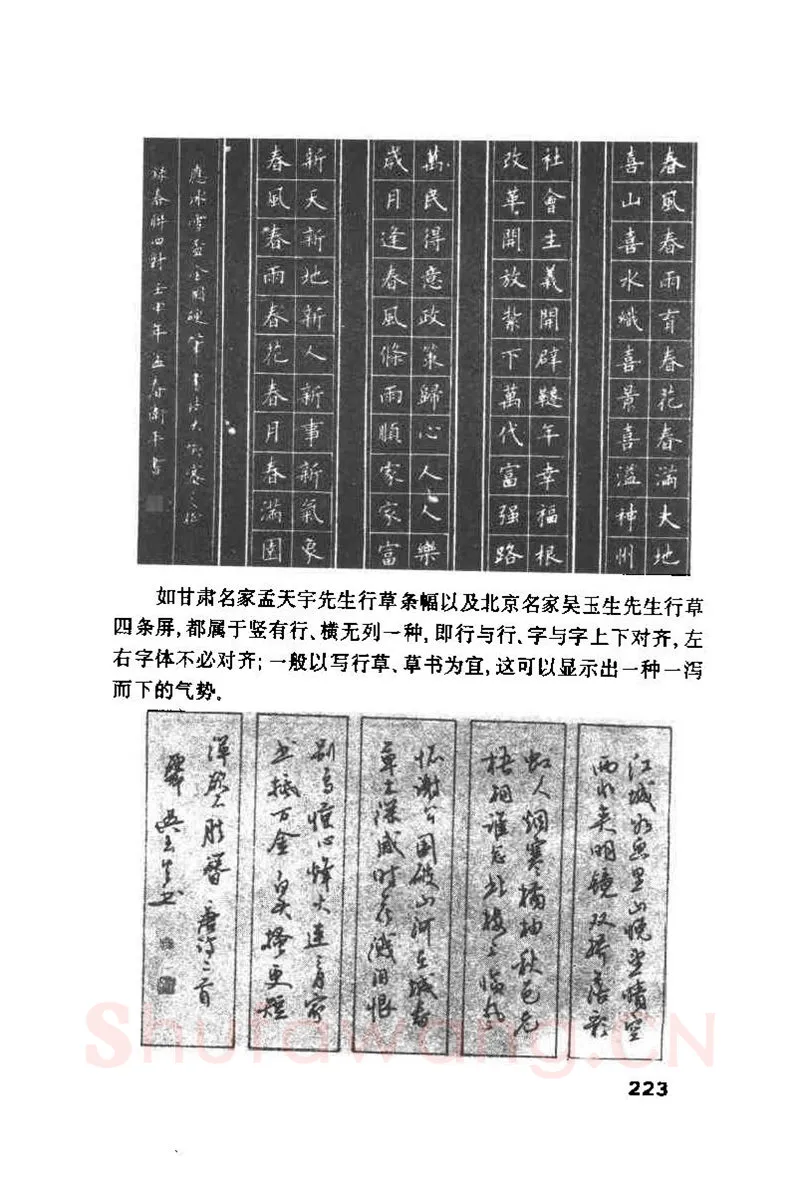 春風春雨育春花春滿大地
喜山喜水熾喜景喜溢神州
社會主義開辟韆年幸福根
改革開放紮下萬代富强路
萬民得意政策歸心人人樂
歲月逢春風條雨順家家富
新天新地新人新事新氣象
春風春雨春花春月春滿園
應冰雪盃全國硬筆書法大
詠春聯四對壬申年立春衛平書
如甘肃名家孟天宇先生行草条幅以及北京名家吴玉生先生行草
四条屏,都属于竖有行、横无列一种,即行与行、字与字上下对齐,左
右字体不必对齐;一般以写行草、草书为宜,这可以显示出一种一泻
而下的气势。
江城如畫里山晚望晴空
兩水夾明鏡双橋落彩
虹人烟寒橘柚秋色老
梧桐誰念北樓上臨風
懷謝公国破山河在城春
草木深感時花濺泪恨
别鳥惊心烽火連三月家
书抵万金白头搔更短
渾欲不勝簪 唐诗二首
吴玉生书
Shufawang.CN
223